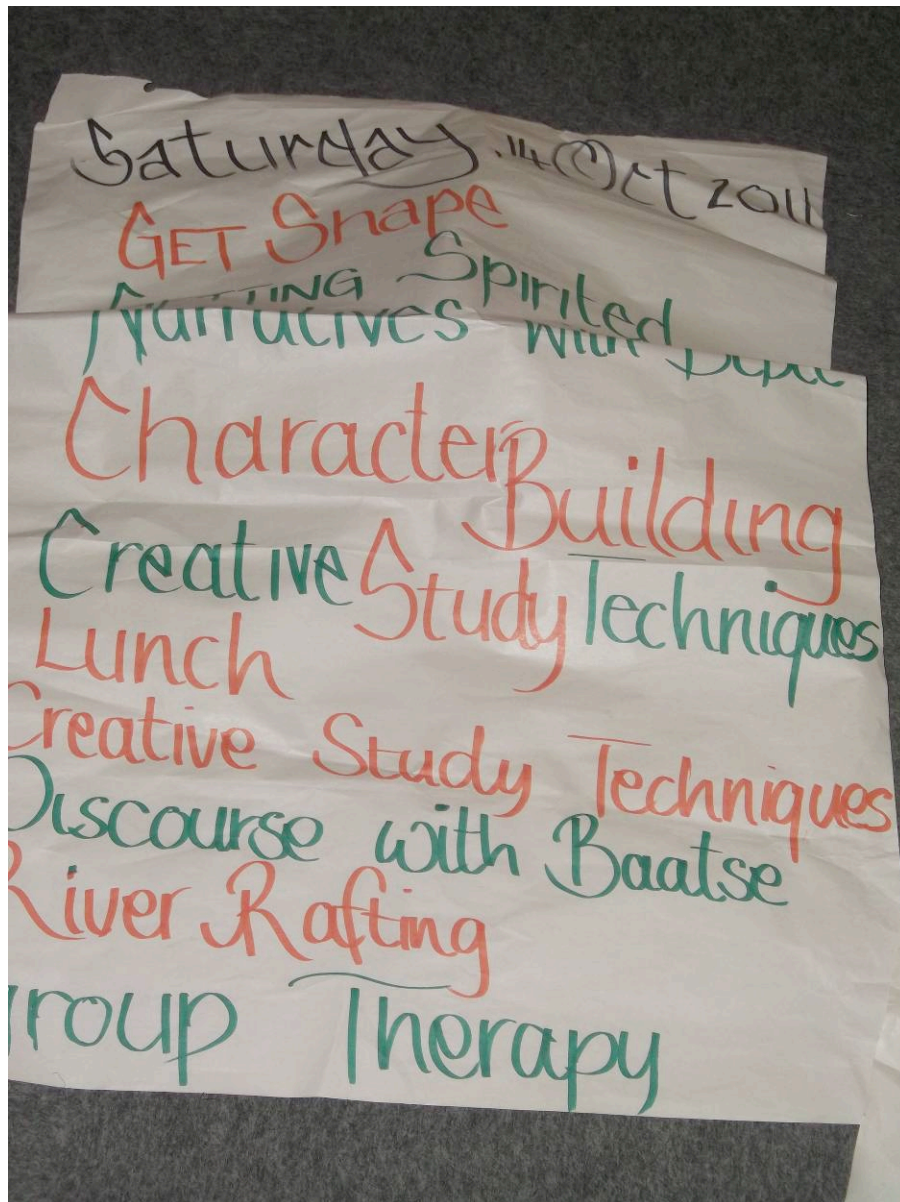 Saturday .14 Oct 2011
GET Shape
Spirited
Narratives with
Character Building
Creative Study Techniques
Lunch
Creative Study Techniques
Discourse with Baatse
River Rafting
Group Therapy